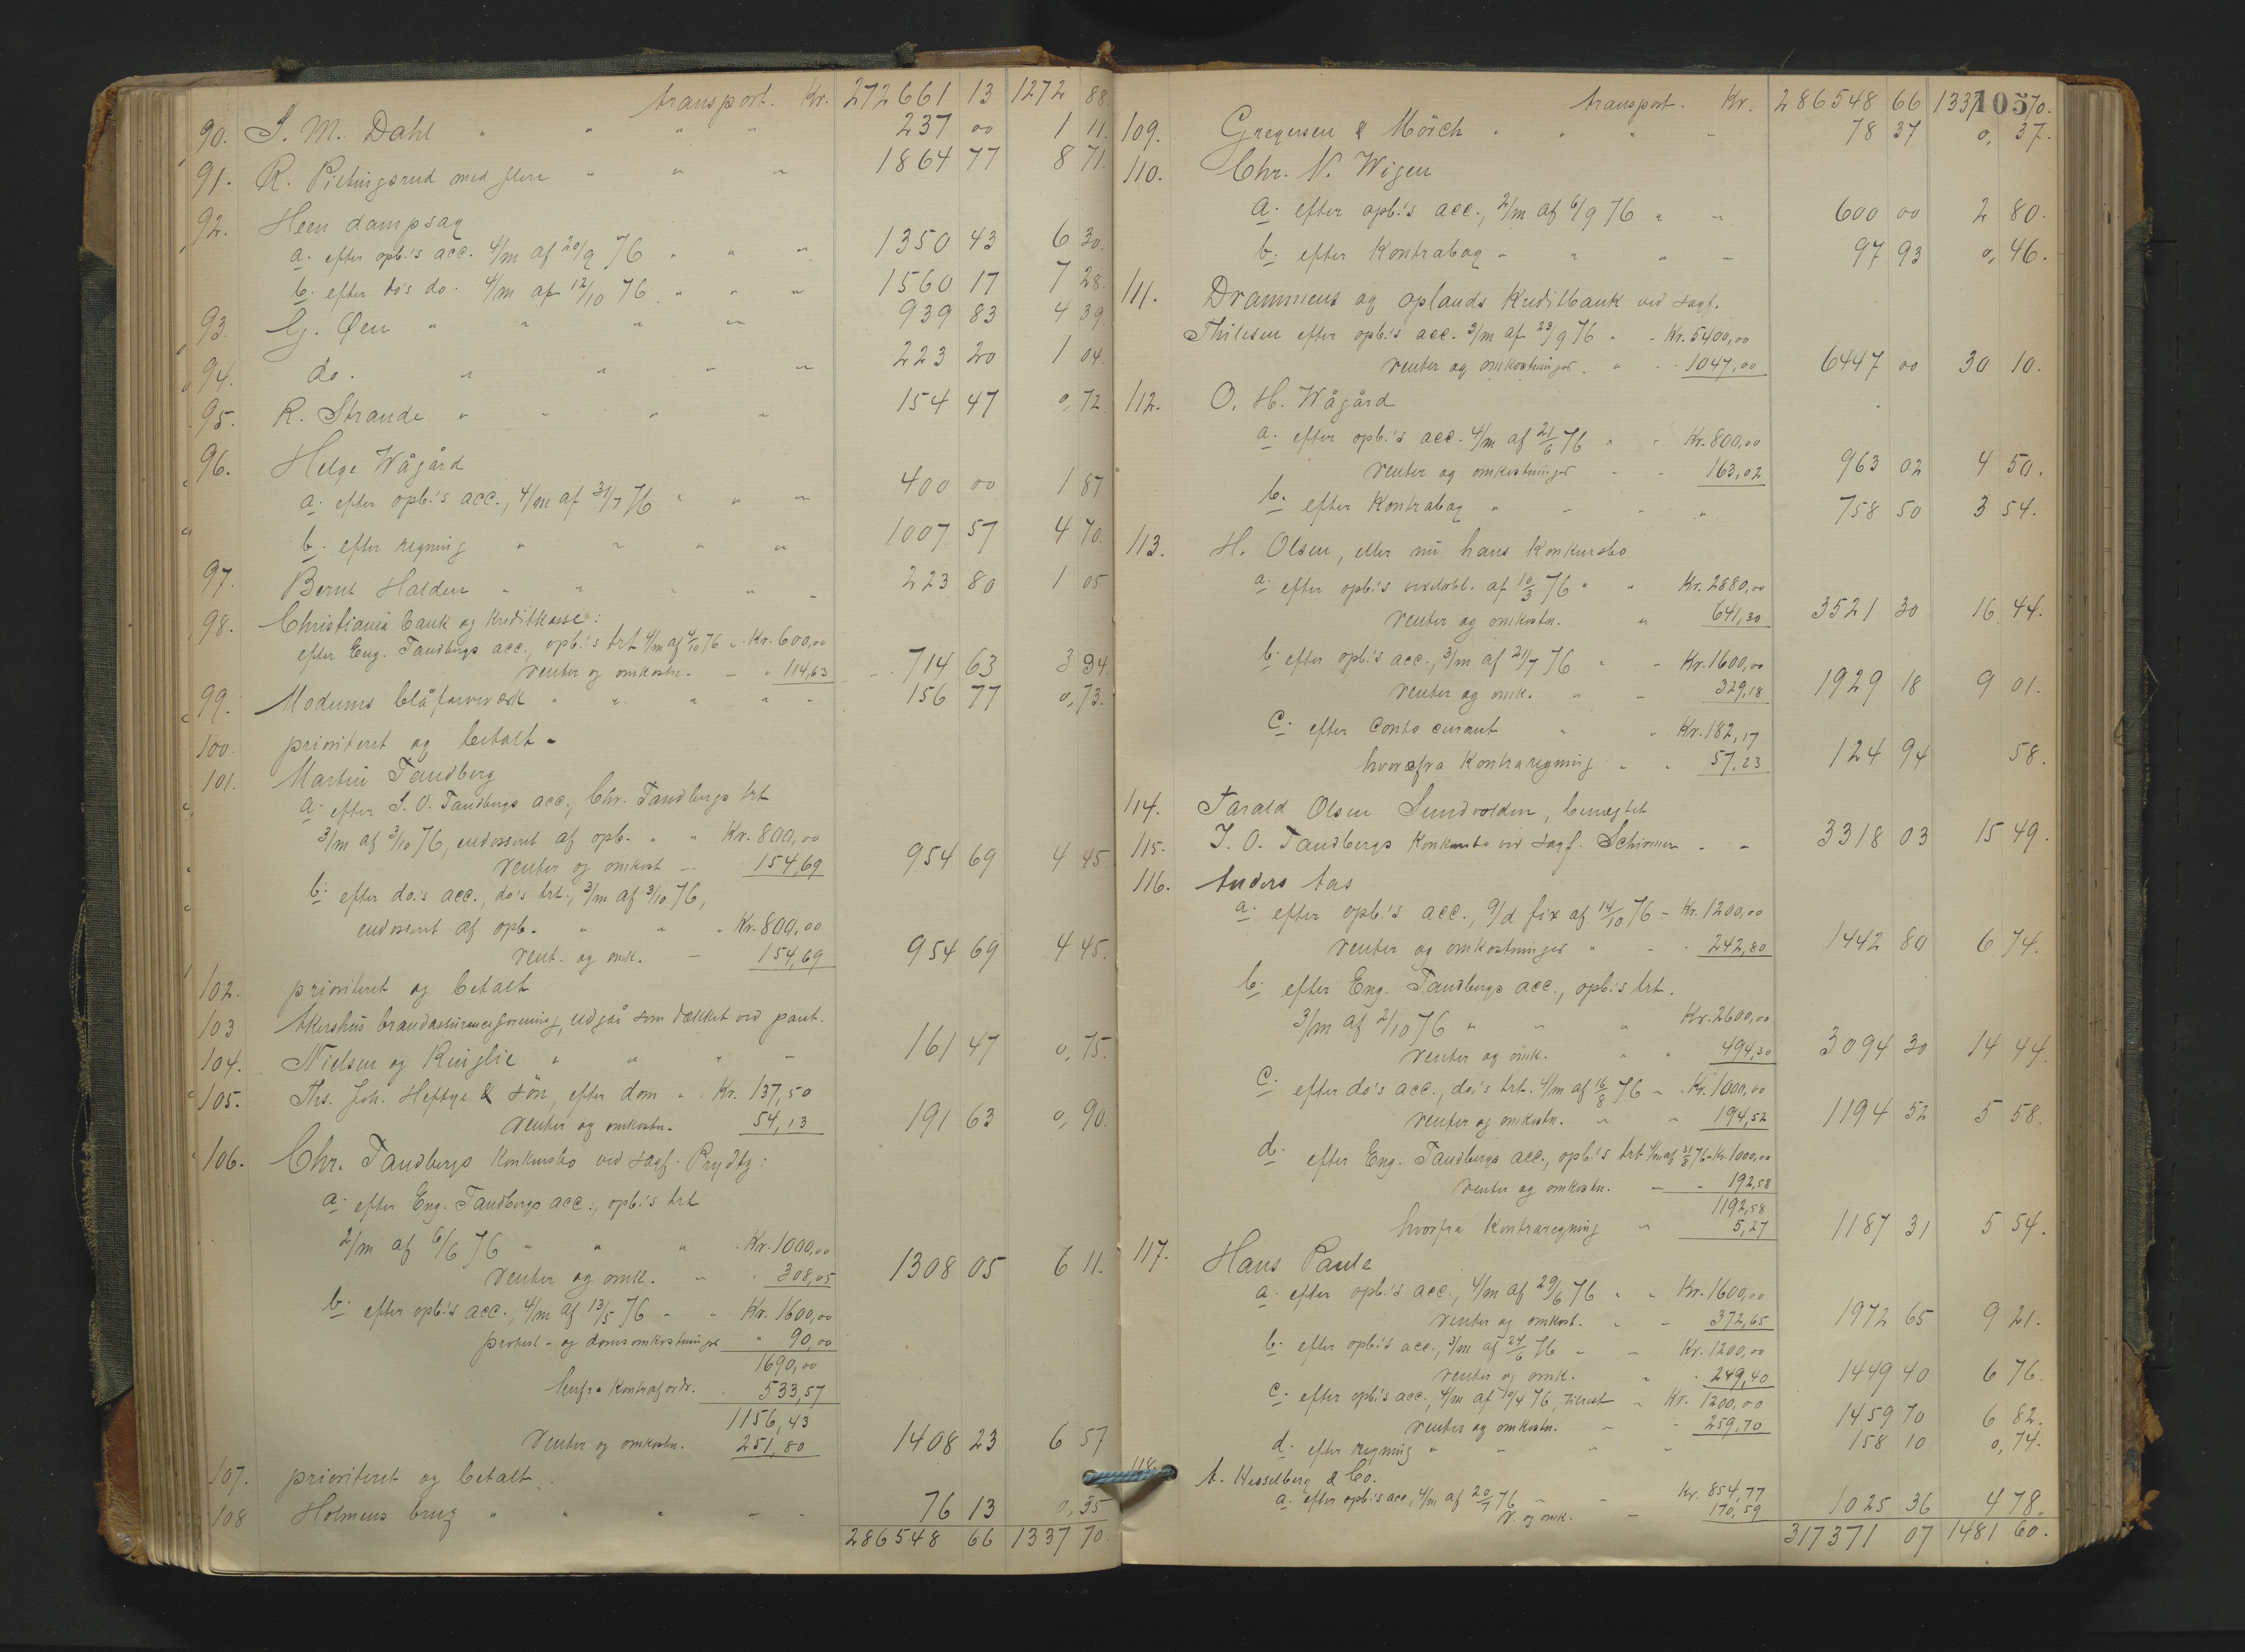 transport. Kr. 272661 13 1272 88.
90. S. M. Dahl " " " " 237 00 1 11.
91. R. Piltingsrud med flere " " " 1864 77 8 71.
92. Heen dampsag
a. efter opb.'s acc. 4/m af 20/9 76 " " " 1350 43 6 30.
b. efter do's do. 4/m af 12/10 76 " " " 1560 17 7 28.
93. G. Øen " " " " 939 83 4 39.
94. do. " " " " 223 20 1 04.
95. R. Strande " " " " 154 47 0,72
96. Helge Wågård
a. efter opb.'s acc., 4/m af 31/7 76 " " " 400 00 1 87
b. efter regning " " " " 1007 57 4 70
97. Bernt Halden " " " " 223 80 1 05
98. Christiania bank og Kreditkasse:
efter Eng. Tandbergs acc., opb.'s trt 4/m af 4/10 76 " Kr. 600,00
renter og omkostn. - " 114,63 714 63 3 34.
99. Modums blåfarveværk " " " " 156 77 0,73.
100. prioriteret og betalt.
101. Martin Tandberg
a. efter S. O. Tandbergs acc., Chr. Tandbergs trt
3/m af 3/10 76, endosseret af opb. " " Kr. 800,00
renter og omkost - 154,69 954 69 4 45
b. efter do.'s acc., do's trt., 3/m af 3/10 76,
endosseret af opb. " " " Kr. 800,00
rent. og omk. - 154,69 954 69 4 45.
102. prioriteret og betalt
103 Akershus brandassuranceforening, udgår som dækket ved pant.
104. Nielsen og Ringlie " " " - 161 47 0,75.
105. Ths. Joh. Heftye & Søn, efter dom " Kr. 137,50
renter og omkostn. 54,13 191 63 0,90.
106. Chr. Tandbergs Konkursbo ved sagf. Prydtz:
a. efter Eng. Tandbergs acc., opb.'s trt
2/m af 6/6 76 " " " Kr. 1000,00
renter og omk. - " 308,05 1308 05 6 11.
b. efter opb.'s acc., 4/m af 13/5 76 - " Kr. 1600,00
protest- og domsomkostninger " 90,00
1690,00
herfra Kontrafordr. . 533,57
1156,43
renter og omkostn. 251,80 1408 23 6 57
107. prioriteret og betalt.
108 Holmens brug " " " - - 76 13 0,35
286548 66 1337 70.
105
transport. Kr. 286548 66 1337 70.
109. Gregersen & Mörch " " " " 78 37 0,37.
110. Chr. N. Wigen
a. efter opb.'s acc., 2/m af 6/9 76 " " 600 00 2 80.
b. efter Kontrabog " " " - 97 93 0,46.
111. Drammens og oplands Kreditbank ved sagf.
Thilesen efter opb.'s acc. 3/m af 23/9 76 " - Kr. 5400,00
renter og omkostninger. " - 1047,00 6447 00 30 10.
112. O. H. Wågård
a. efter opb.'s acc. 4/m af 21/6 76 " - Kr. 800,00
renter og omkostninger - - 163,02 963 02 4 50.
b. efter Kontrabog " - - " 758 50 3 54.
113. H. Olsen, eller nu hans Konkursbo
a. efter opb.'s vexelobl. af 10/3 76 " " Kr. 2880,00
renter og omkostn. " 641,30 3521 30 16 44.
b. efter opb.'s acc., 3/m af 21/7 76 " - Kr. 1600,00
renter og omk. " - 329,18 1929 18 9 01.
c. efter conto curant " " Kr. 182,17
hvorfra Kontraregning " " 57,23 124 94 58.
114. Tarald Olsen Sundvolden, benegtet
115. J. O. Tandbergs Konkursbo ved sagf. Schirmer - - 3318 03 15 49.
116. Anders Aas
a. efter opb.'s acc., 9/d fix af 14/10 76 - Kr. 1200,00
renter og omkostninger " - - 242,80 1442 80 6 74.
b. efter Eng. Tandbergs acc., opb.'s trt.
3/m af 2/10 76 " " " Kr. 2600,00
renter og omk. " " 494,30 3094 30 14 44.
c. efter do's acc., do.'s trt. 4/m af 16/8 76 - Kr. 1000,00
renter og omkostn. " " 194,52 1194 52 5 58.
d. efter Eng. Tandbergs acc., opb.'s trt 4/m af 31/8 76 - Kr. 1000,00
renter og omkostn. - - 192,58
1192,58
hvorfra Kontraregning " 5,27 1187 31 5 54.
117. Hans Paule
a. efter opb.'s acc., 4/m af 29/6 76 " " Kr. 1600,00
renter og omkost. " - 372,65 1972 65 9 21.
b. efter opb.'s acc., 3/m af 24/6 76 - - Kr. 1200,00
renter og omk. " - 249,40 1449 40 6 76.
c. efter opb.'s acc., 4/m af 10/4 76, - Kr. 1200,00
renter og omkostn. - - 259,70 1459 70 6 82.
d. efter regning " - " " 158 10 0,74.
118. A. Hesselberg & Co.
a. efter opb.'s acc., 4/m af 20/7 76 - - Kr. 854,77
r. og omk. - 170,59 1025 36 4 78.
317371 07 1481 60.